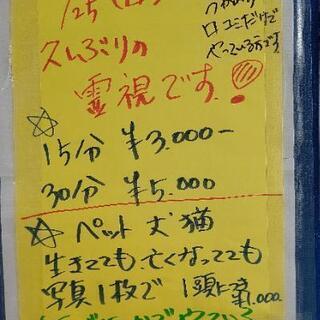 1/25 (日)
久しぶりの
霊視です。
口コミだけで
やっている方です
☆
15分 ¥3.000-
30分 ¥5.000
☆ ペット 犬 猫
生きてても、亡くなってても
写真1枚で 1頭に¥1.000